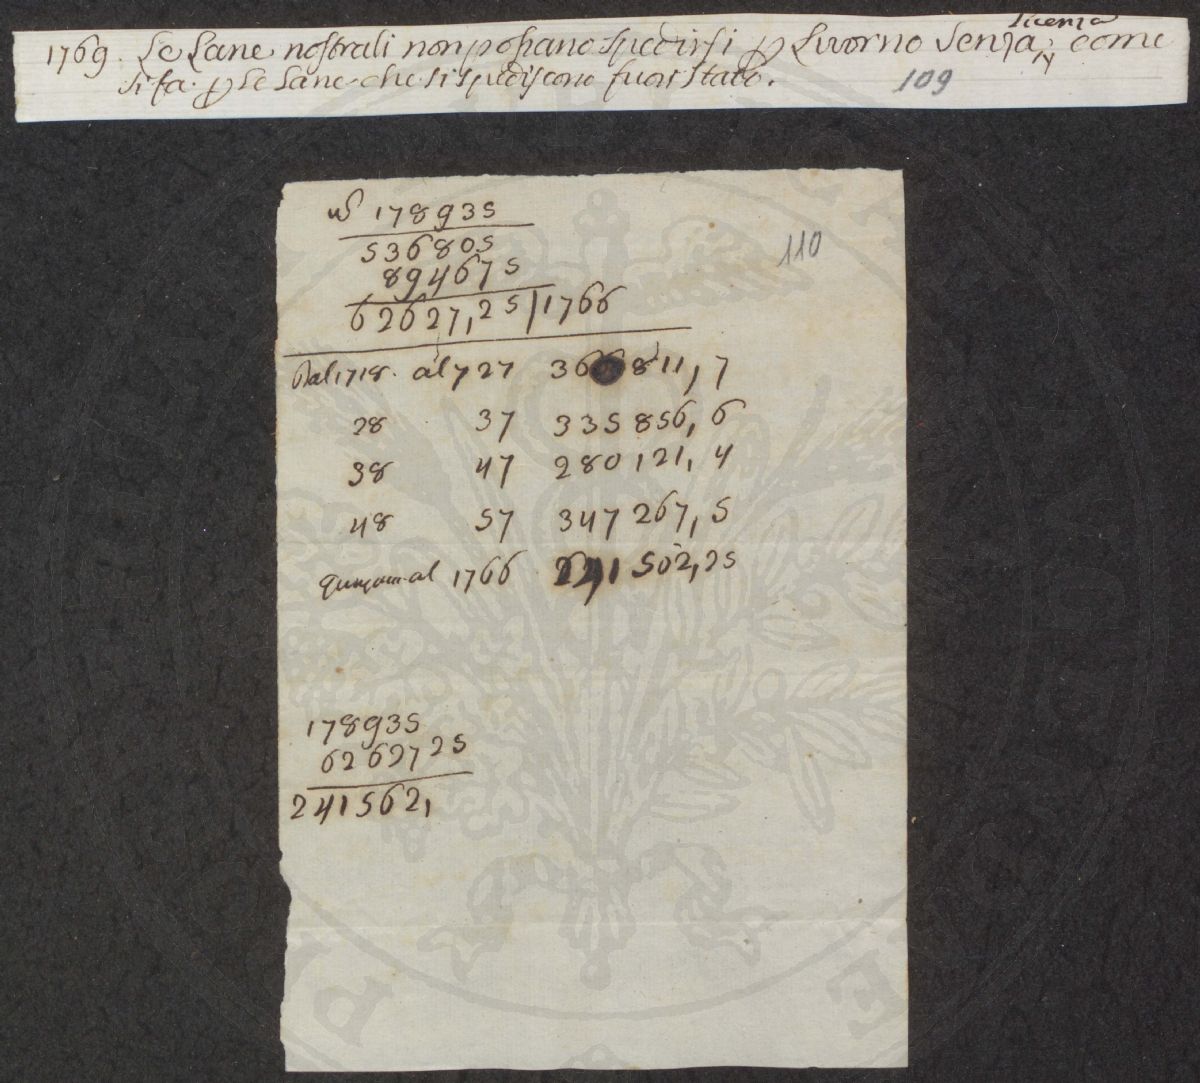 licenza
1769. Le Lane nostrali non possano spedirsi p Livorno senza, come
si fa p Le Lane che si spediscono fuori Stato.
109
110
178935
536805
894675
62627,25 | 1766
Dal 1718. al 727 366811,7
28 37 335856,6
38 47 280121,4
48 57 347267,5
al 1766 241502,25
178935
6262725
241562,